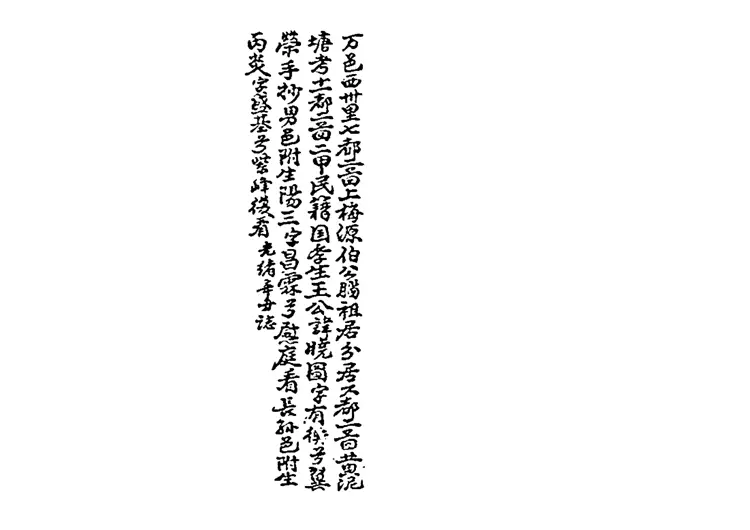 万邑西卅里七都一啚上梅源伯公腦祖居分居六都一啚黄泥
塘考十一都二啚二甲民籍国孝生王公諱曉圖字有機号巽
榮手抄男邑附生陽三字昌霖号慰庭看長孫邑附生
丙炎字盛基号紫峰後看光绪辛丑誌